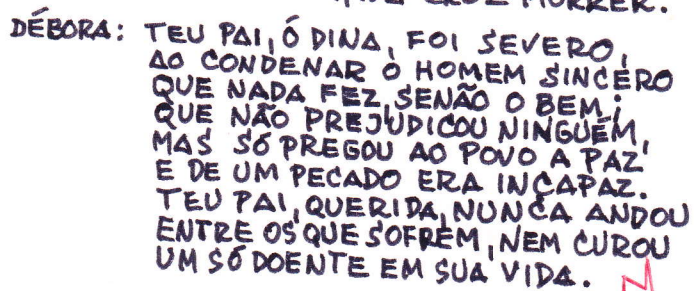 CRUZ MORRER.
DÉBORA: TEU PAI, Ó DINA, FOI SEVERO,
AO CONDENAR O HOMEM SINCERO
QUE NADA FEZ, SENÃO O BEM;
QUE NÃO PREJUDICOU NINGUÉM,
MAS SÓ PREGOU AO POVO A PAZ
E DE UM PECADO ERA INCAPAZ.
TEU PAI, QUERIDA, NUNCA ANDOU
ENTRE OS QUE SOFREM, NEM CUROU
UM SÓ DOENTE EM SUA VIDA.